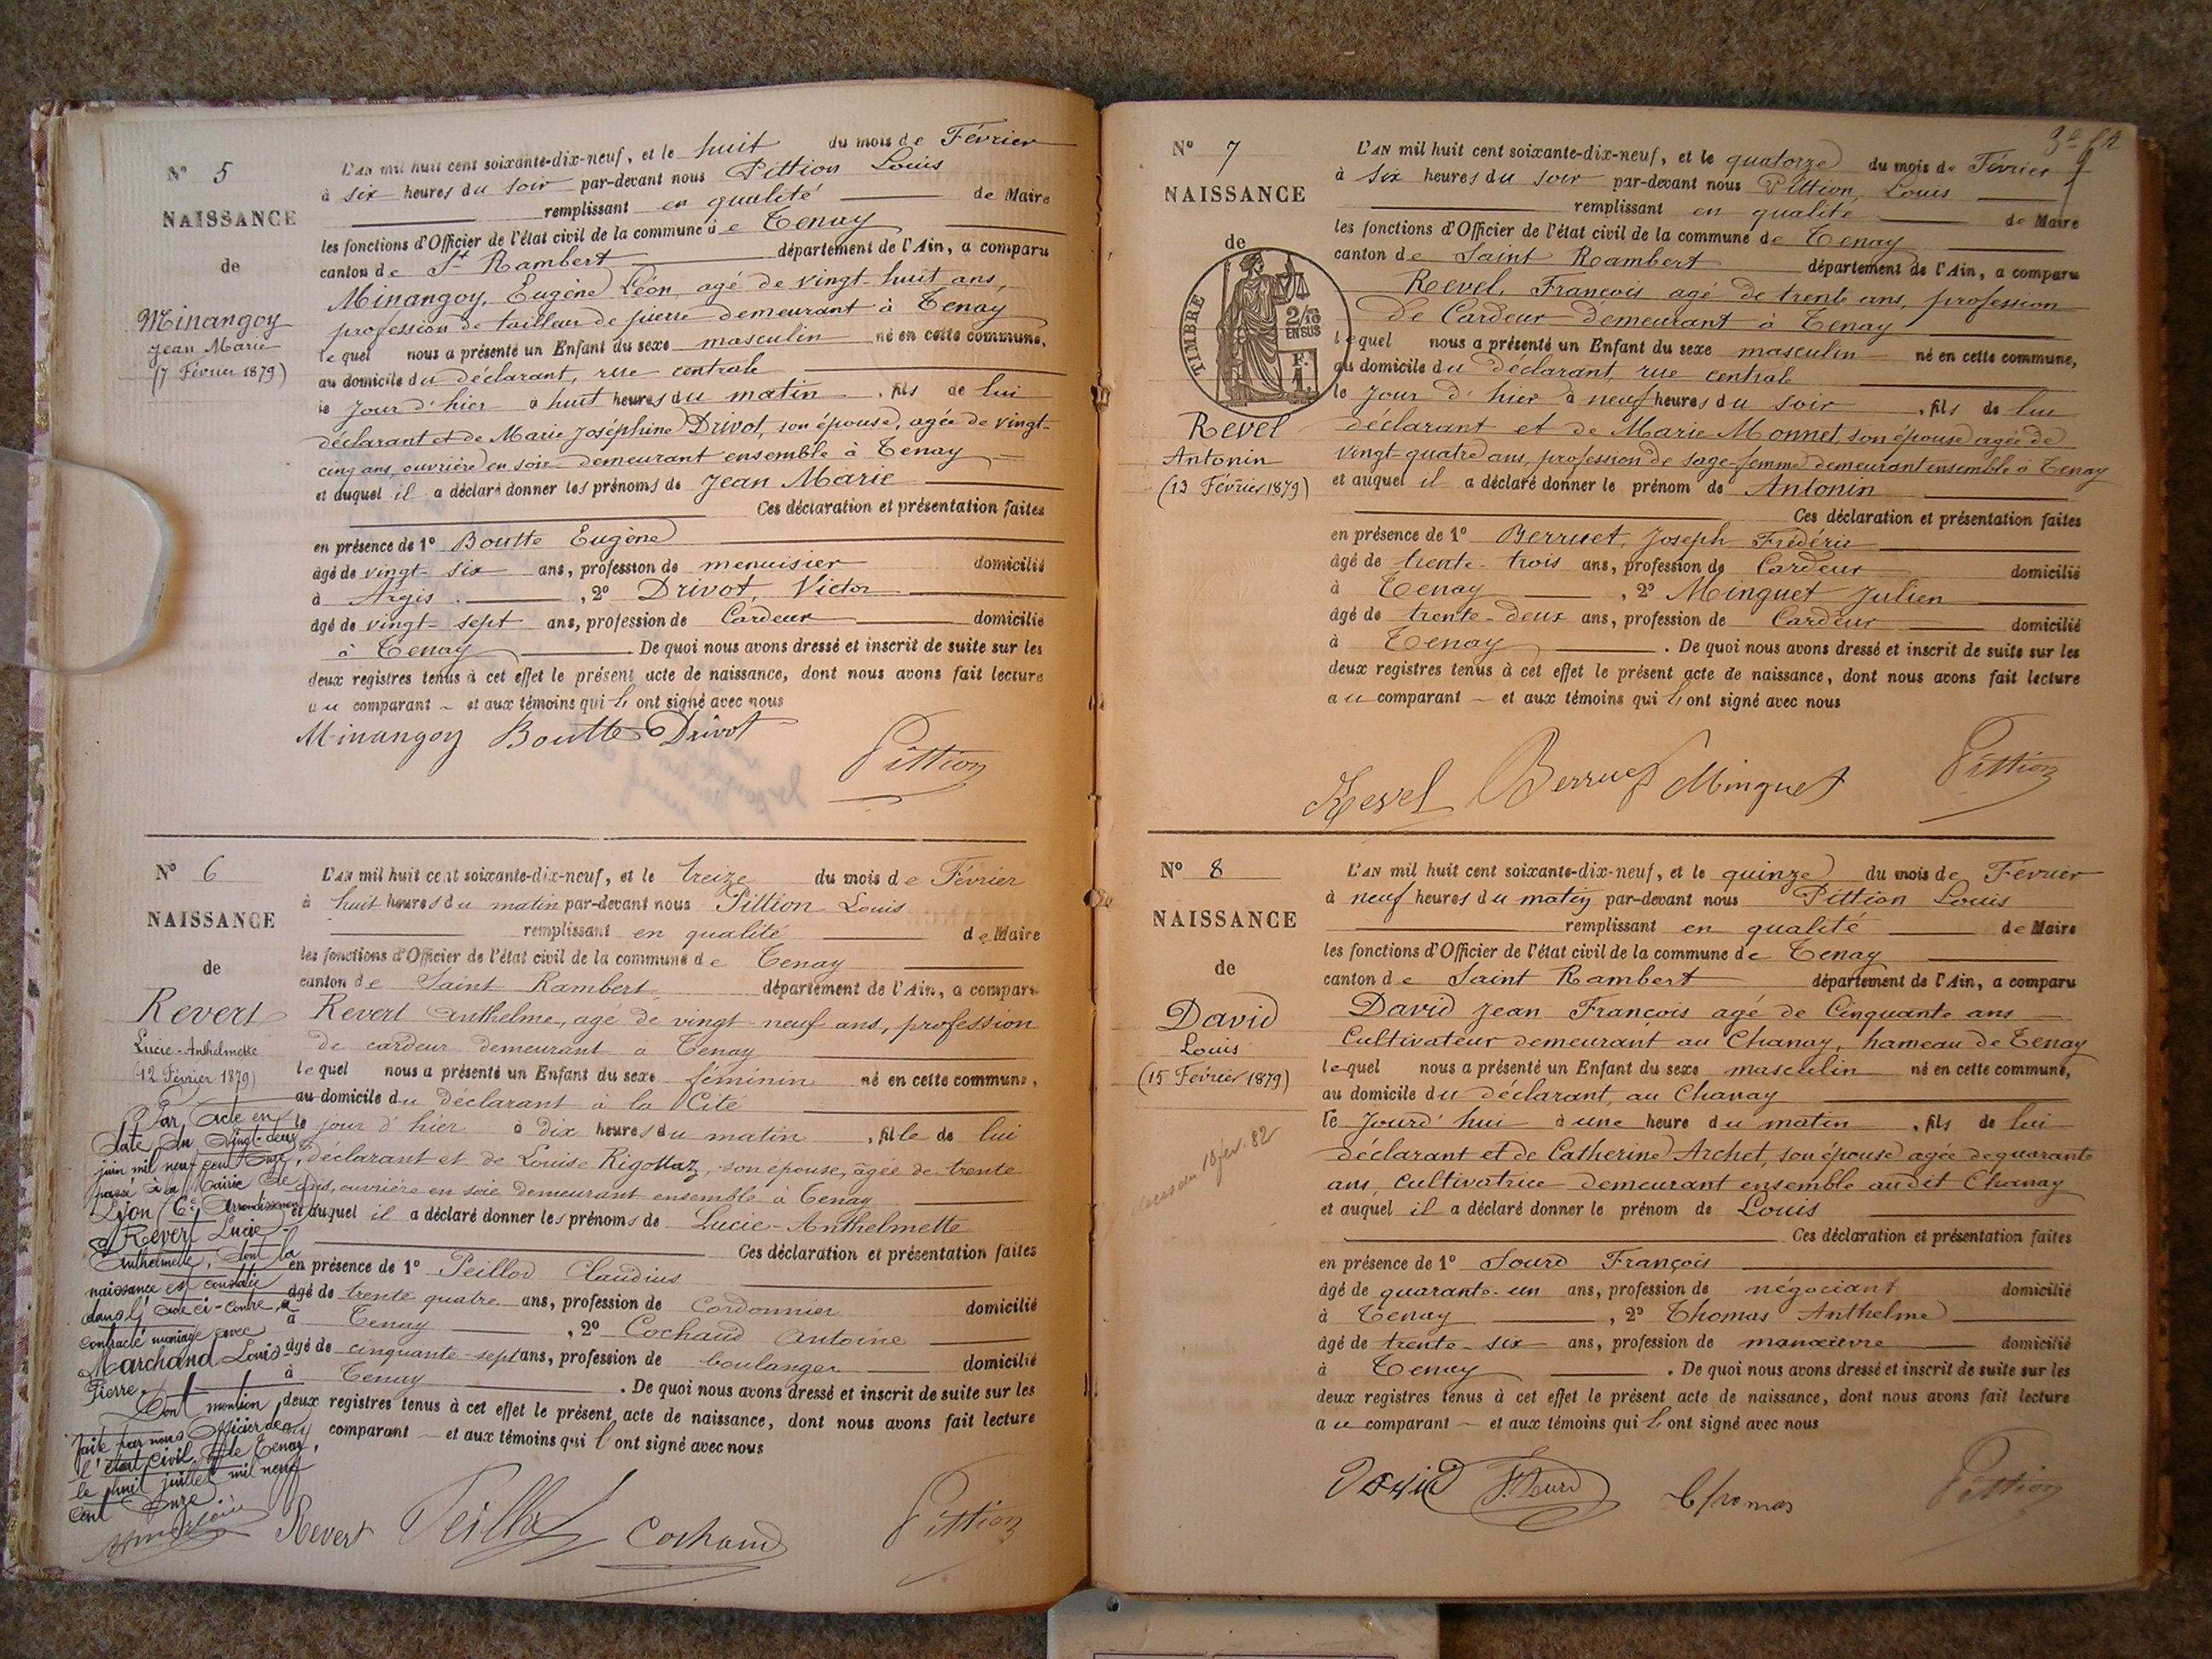 N° 5
NAISSANCE
de
Minangoy
Jean Marie
(7 Février 1879)
L'AN mil huit cent soixante-dix-neuf, et le huit du mois de Février
à six heures du soir par-devant nous Pittion Louis
remplissant en qualité de Maire
les fonctions d'Officier de l'état civil de la commune de Tenay
canton de St Rambert département de l'Ain, a comparu
Minangoy, Eugène Léon, agé de vingt-huit ans,
profession de tailleur de pierre demeurant à Tenay
lequel nous a présenté un Enfant du sexe masculin né en cette commune,
au domicile du déclarant, rue centrale
le jour d'hier à huit heures du matin, fils de lui
déclarant et de Marie Joséphine Drivot, son épouse, agée de vingt-
cinq ans, ouvrière en soie demeurant ensemble à Tenay
et auquel il a déclaré donner les prénoms de Jean Marie
Ces déclaration et présentation faites
en présence de 1° Boutte Eugène
âgé de vingt-six ans, profession de menuisier domicilié
à Argis, 2° Drivot, Victor
âgé de vingt-sept ans, profession de Cardeur domicilié
à Tenay. De quoi nous avons dressé et inscrit de suite sur les
deux registres tenus à cet effet le présent acte de naissance, dont nous avons fait lecture
au comparant et aux témoins qui l'ont signé avec nous
Minangoy Boutte Drivot
Pittion
N° 6
NAISSANCE
de
Revert
Lucie-Anthelmette
(12 Février 1879)
Par acte en
date du vingt-deux
juin mil neuf cent onze,
passé à la Mairie de
Lyon (6e arrondissement)
Revert Lucie
Anthelmette, dont la
naissance est constatée
dans l'acte ci-contre, a
contracté mariage avec
Marchand Louis
Pierre.
Dont mention
faite par nous Officier de
l'état civil de Tenay,
le huit juillet mil neuf
cent onze
L'AN mil huit cent soixante-dix-neuf, et le treize du mois de Février
à huit heures du matin par-devant nous Pittion Louis
remplissant en qualité de Maire
les fonctions d'Officier de l'état civil de la commune de Tenay
canton de Saint Rambert, département de l'Ain, a comparu
Revert Anthelme, agé de vingt-neuf ans, profession
de cardeur demeurant à Tenay
lequel nous a présenté un Enfant du sexe féminin né en cette commune,
au domicile du déclarant à la Cité
le jour d'hier à dix heures du matin, fille de lui
déclarant et de Louise Rigottaz, son épouse, âgée de trente
ans, ouvrière en soie demeurant ensemble à Tenay
et auquel il a déclaré donner les prénoms de Lucie-Anthelmette
Ces déclaration et présentation faites
en présence de 1° Peillod Claudius
âgé de trente quatre ans, profession de Cordonnier domicilié
à Tenay, 2° Cochaud Antoine
âgé de cinquante-sept ans, profession de boulanger domicilié
à Tenay. De quoi nous avons dressé et inscrit de suite sur les
deux registres tenus à cet effet le présent acte de naissance, dont nous avons fait lecture
au comparant et aux témoins qui l'ont signé avec nous
Revert Peillod Cochaud Pittion
N° 7
NAISSANCE
de
TIMBRE
2/10
EN SUS
F.
1.
Revel
Antonin
(13 Février 1879)
L'AN mil huit cent soixante-dix-neuf, et le quatorze du mois de Février
à six heures du soir par-devant nous Pittion, Louis
remplissant en qualité de Maire
les fonctions d'Officier de l'état civil de la commune de Tenay
canton de Saint Rambert département de l'Ain, a comparu
Revel, François agé de trente ans, profession
de Cardeur demeurant à Tenay
lequel nous a présenté un Enfant du sexe masculin né en cette commune,
au domicile du déclarant, rue centrale
le jour d'hier à neuf heures du soir, fils de lui
déclarant et de Marie Monnet, son épouse agée de
vingt-quatre ans, profession de sage-femme demeurant ensemble à Tenay
et auquel il a déclaré donner le prénom de Antonin
Ces déclaration et présentation faites
en présence de 1° Berruet, Joseph Frédéric
âgé de trente-trois ans, profession de Cardeur domicilié
à Tenay, 2° Minguet Julien
âgé de trente-deux ans, profession de Cardeur domicilié
à Tenay. De quoi nous avons dressé et inscrit de suite sur les
deux registres tenus à cet effet le présent acte de naissance, dont nous avons fait lecture
au comparant et aux témoins qui l'ont signé avec nous
Revel Berruet Minguet Pittion
N° 8
NAISSANCE
de
David
Louis
(15 Février 1879)
18 fév. 82
L'AN mil huit cent soixante-dix-neuf, et le quinze du mois de Février
à neuf heures du matin par-devant nous Pittion Louis
remplissant en qualité de Maire
les fonctions d'Officier de l'état civil de la commune de Tenay
canton de Saint Rambert département de l'Ain, a comparu
David Jean François agé de Cinquante ans
Cultivateur demeurant au Chanay, hameau de Tenay
lequel nous a présenté un Enfant du sexe masculin né en cette commune,
au domicile du déclarant, au Chanay
le jourd'hui à une heure du matin, fils de lui
déclarant et de Catherine Archet, son épouse agée de quarante
ans, Cultivatrice demeurant ensemble audit Chanay
et auquel il a déclaré donner le prénom de Louis
Ces déclaration et présentation faites
en présence de 1° Sourd François
âgé de quarante-un ans, profession de négociant domicilié
à Tenay, 2° Thomas Anthelme
âgé de trente-six ans, profession de manœuvre domicilié
à Tenay. De quoi nous avons dressé et inscrit de suite sur les
deux registres tenus à cet effet le présent acte de naissance, dont nous avons fait lecture
au comparant et aux témoins qui l'ont signé avec nous
David F. Sourd Thomas Pittion